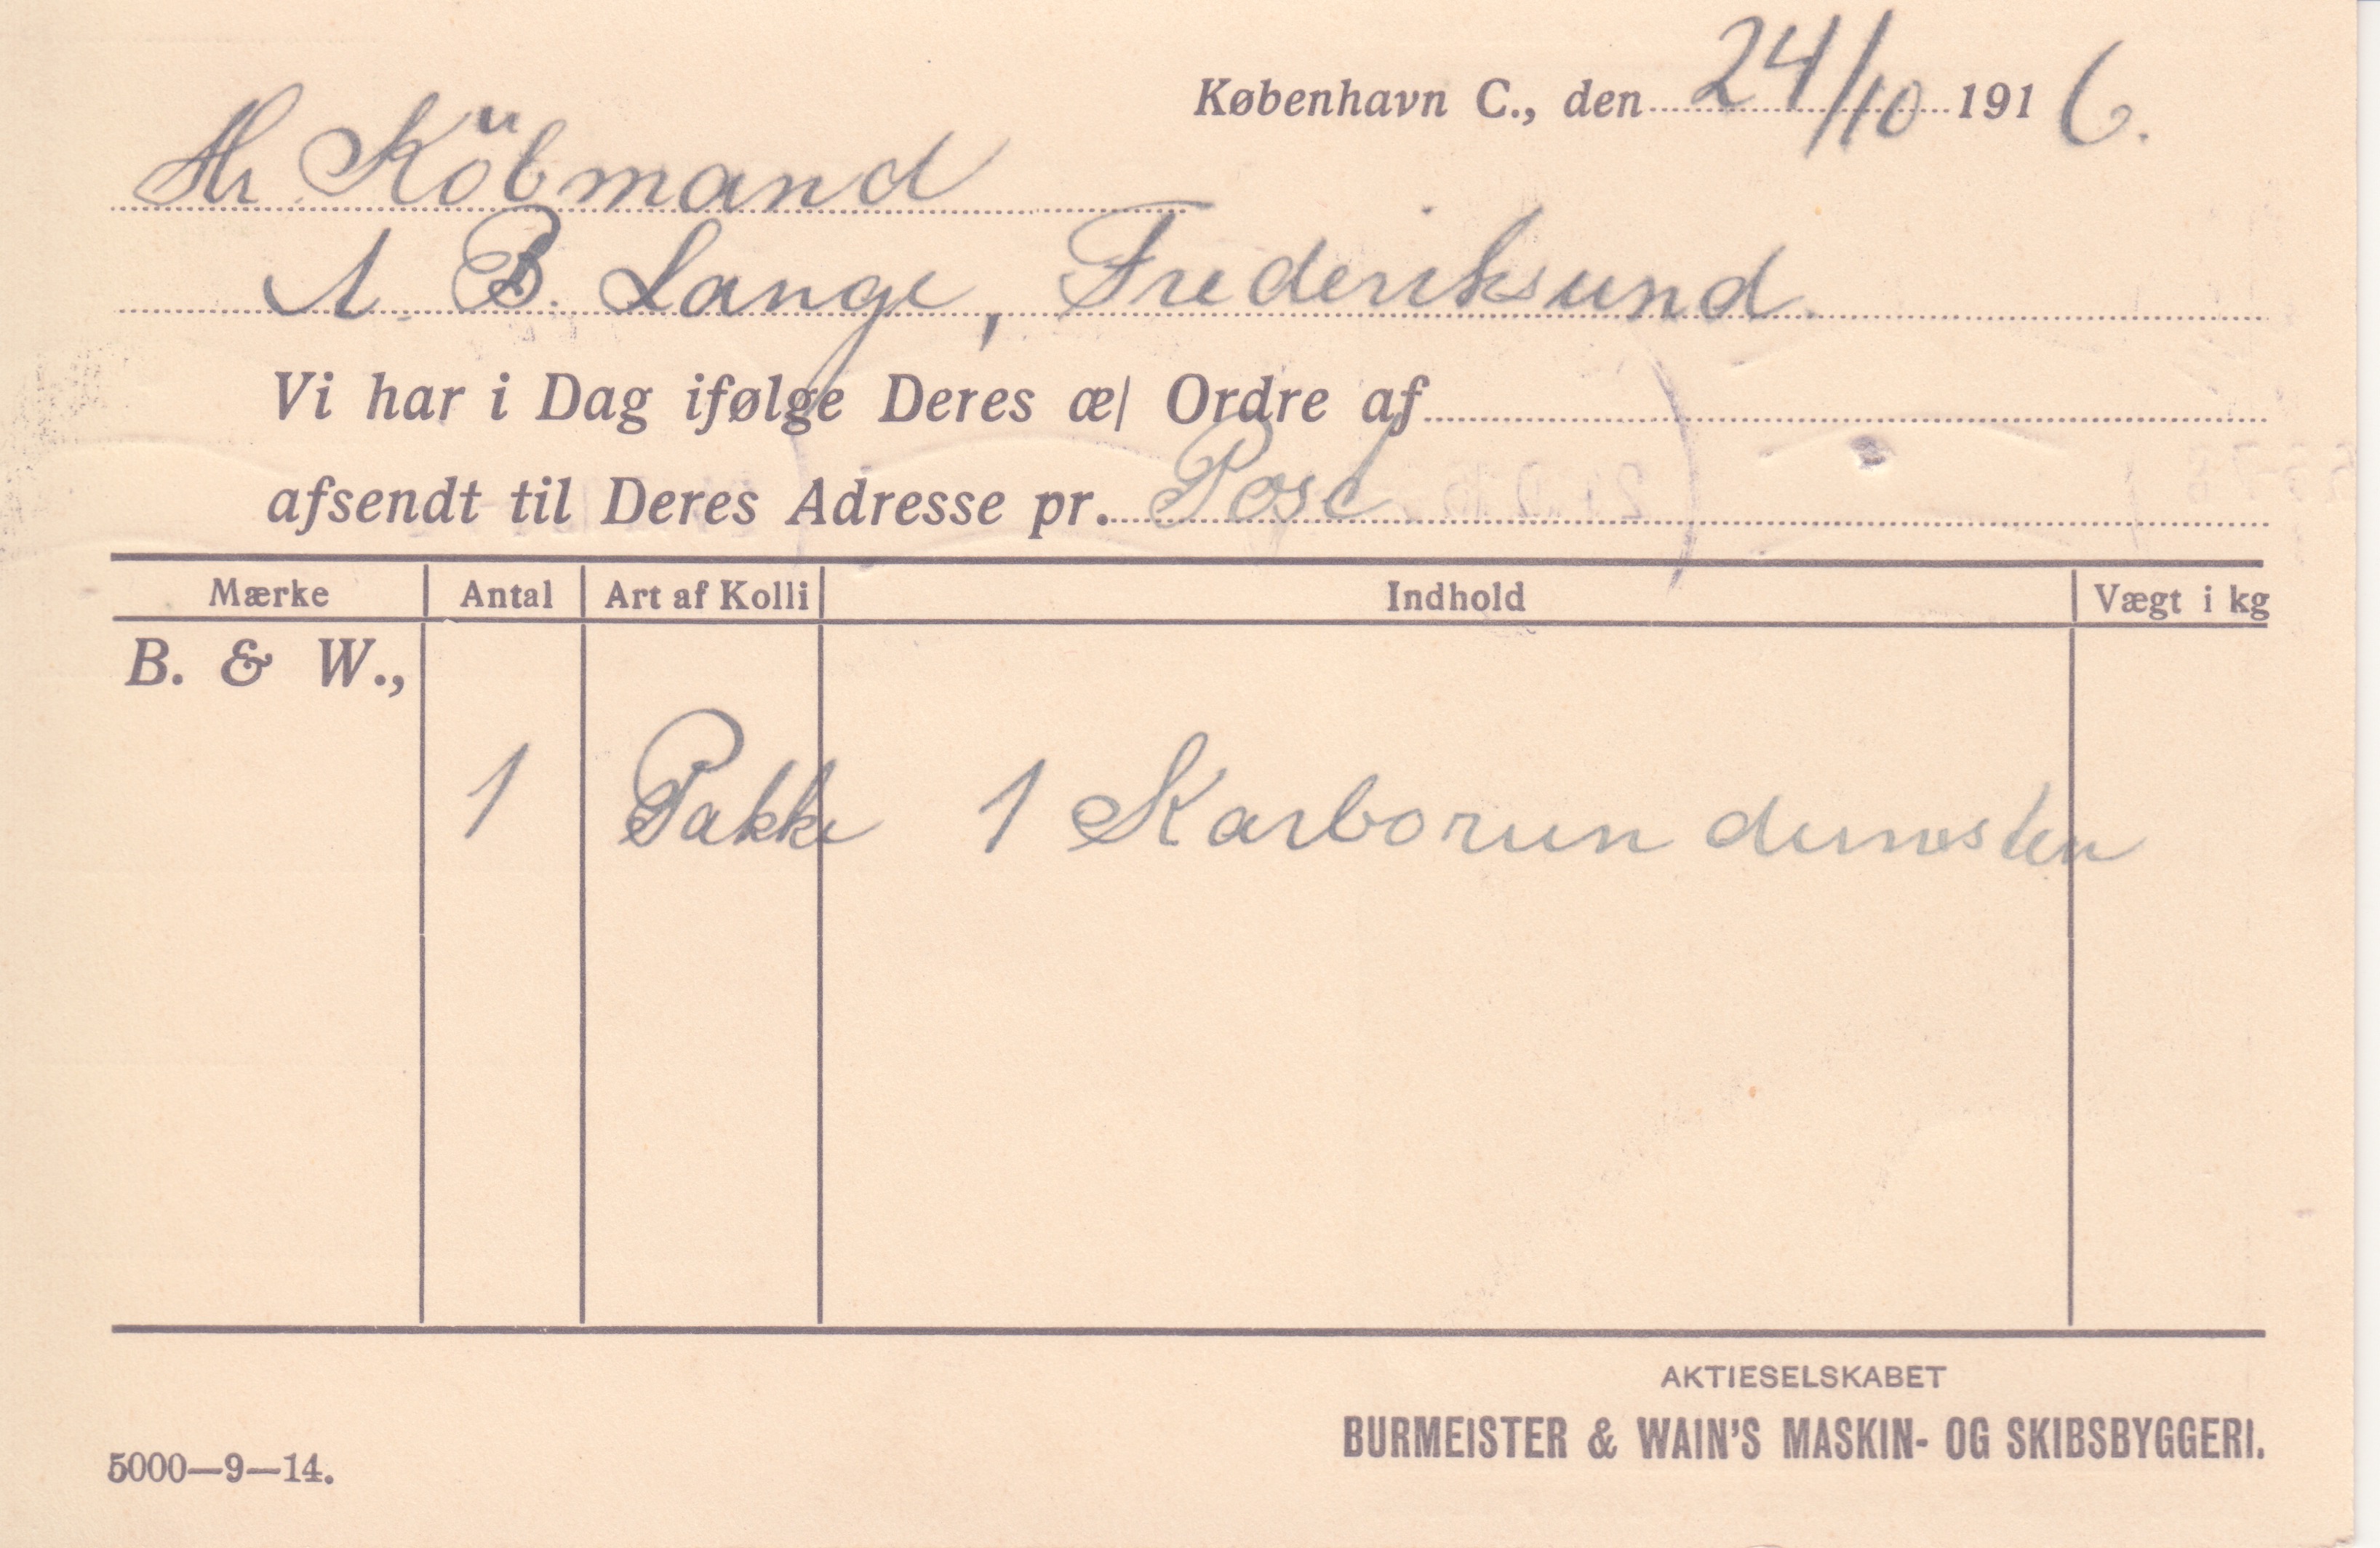 København C., den 24/10 1916.
Hr. Köbmand
A. B. Lange, Frederiksund.
Vi har i Dag ifølge Deres æ/ Ordre af
afsendt til Deres Adresse pr. Post
Mærke Antal Art af Kolli Indhold Vægt i kg
B. & W.,
1 Pakke 1 Karborundumsten
AKTIESELSKABET
BURMEISTER & WAIN'S MASKIN- OG SKIBSBYGGERI.
5000—9—14.